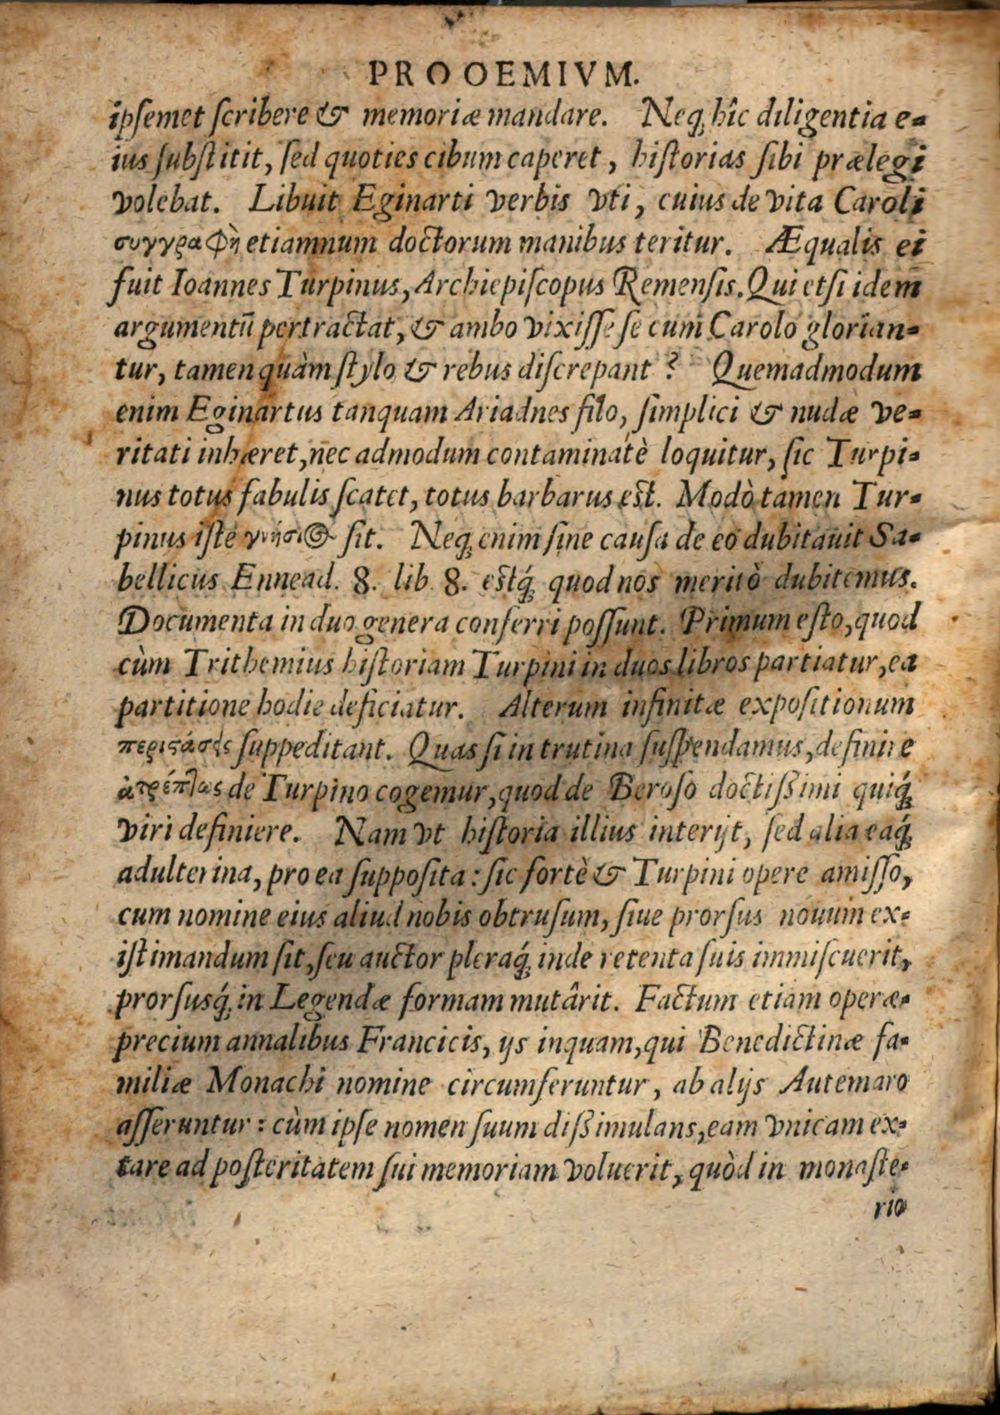 PROOEMIVM.
ipsemet scribere & memoriæ mandare. Neq; hîc diligentia e-
ius substitit, sed quoties cibum caperet, historias sibi prælegi
volebat. Libuit Eginarti verbis vti, cuius de vita Caroli
συγγραφὴ etiamnum doctorum manibus teritur. Æqualis ei
fuit Ioannes Turpinus, Archiepiscopus Remensis. Qui etsi idem
argumentũ pertractat, & ambo vixisse se cum Carolo glorian-
tur, tamen quàm stylo & rebus discrepant? Quemadmodum
enim Eginartus tanquam Ariadnes filo, simplici & nudæ ve-
ritati inhæret, nec admodum contaminatè loquitur, sic Turpi-
nus totus fabulis scatet, totus barbarus est. Modò tamen Tur-
pinus iste γνήσιος sit. Neq; enim sine causa de eo dubitauit Sa-
bellicus Ennead. 8. lib 8. estq́; quod nos meritò dubitemus.
Documenta in duo genera conferri possunt. Primum esto, quod
cùm Trithemius historiam Turpini in duos libros partiatur, ea
partitione hodie deficiatur. Alterum infinitæ expositionum
περιστάσεις suppeditant. Quas si in trutina suspendamus, definire
ἀτρέπτως de Turpino cogemur, quod de Beroso doctißimi quiq́;
viri definiere. Nam vt historia illius interijt, sed alia eaq́;
adulterina, pro ea supposita: sic fortè & Turpini opere amisso,
cum nomine eius aliud nobis obtrusum, siue prorsus nouum ex-
istimandum sit, seu auctor pleraq́; inde retenta suis immiscuerit,
prorsusq́; in Legendæ formam mutârit. Factum etiam operæ-
precium annalibus Francicis, ijs inquam, qui Benedictinæ fa-
miliæ Monachi nomine circumferuntur, ab alijs Autemaro
asseruntur: cùm ipse nomen suum dißimulans, eam vnicam ex-
tare ad posteritatem sui memoriam voluerit, quòd in monaste-
rio